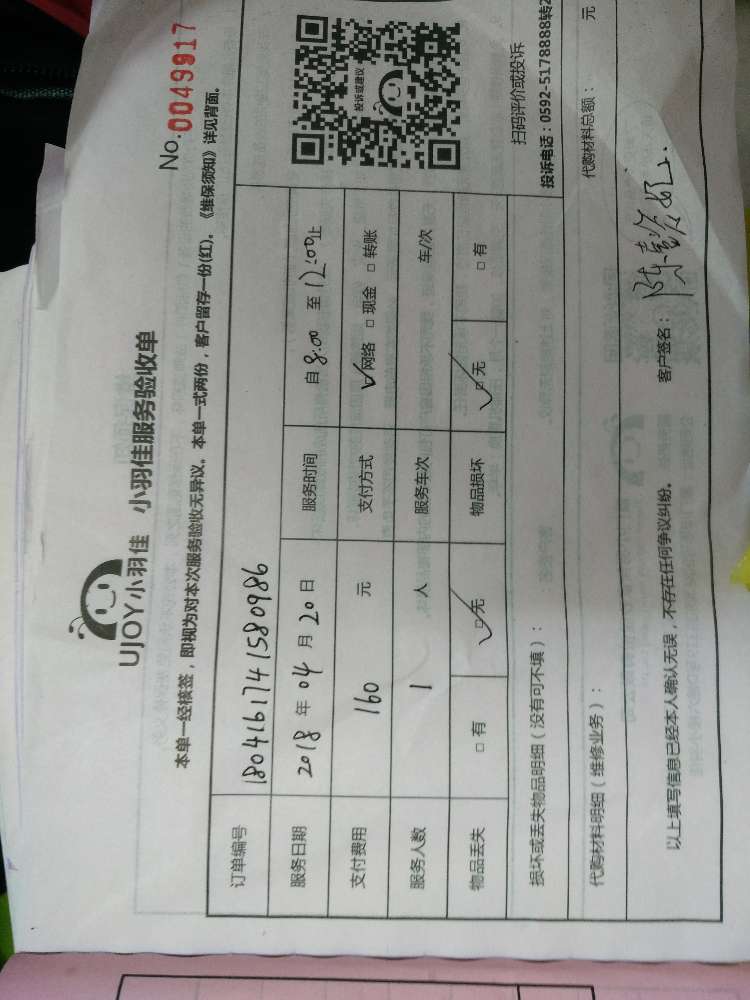 No.0049917
UJOY小羽佳 小羽佳服务验收单
本单一经核签，即视为对本次服务验收无异议。本单一式两份，客户留存一份(红)。《维保须知》详见背面。
订单编号 1804161741580986
投诉或建议
服务日期 2018年04月20日 服务时间 自8:00至12:00止
支付费用 160 元 支付方式 ☑网络 □现金 □转账
服务人数 1 人 服务车次 车/次
物品丢失 □有 ☑无 物品损坏 ☑无 □有
扫码评价或投诉
投诉电话：0592-5178888转2
损坏或丢失物品明细（没有可不填）：
代购材料明细（维修业务）： 代购材料总额： 元
以上填写信息已经本人确认无误，不存在任何争议纠纷。 客户签名：